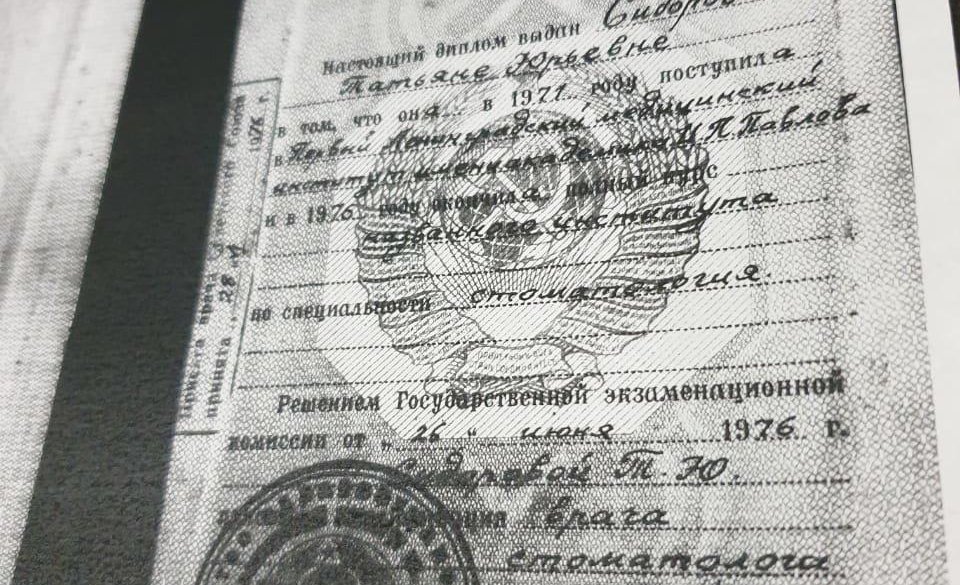 Настоящий диплом выдан Сидоров
Татьяне Юрьевне
в том, что она в 1971 году поступила
в Первый Ленинградский медицинский
институт имени академика И.П.Павлова
и в 1976 году окончила полный курс
названного института
по специальности стоматология.
Решением Государственной экзаменационной
комиссии от „ 26 " июня 1976 г.
Сидоровой Т. Ю.
квалификация врача
стоматолога
Присяга врача Советского Союза
принята 28 1976 г.